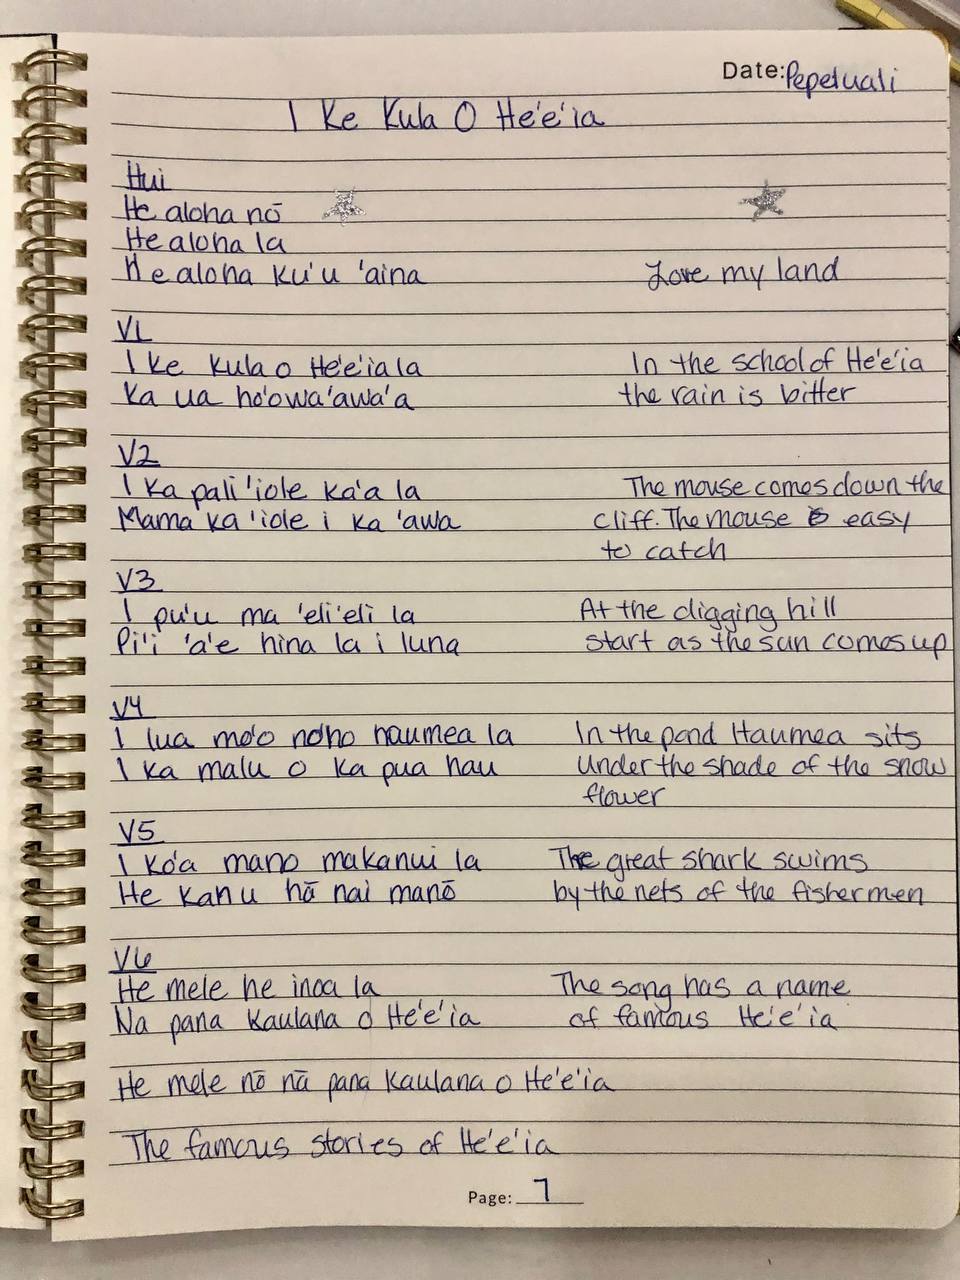 Date: Pepeluali
I Ke Kula O He'e'ia
Hui
He aloha nō
He aloha la
He aloha ku'u 'aina Love my land
V1
I ke kula o He'e'ia la In the school of He'e'ia
Ka ua ho'owa'awa'a the rain is bitter
V2
I ka pali 'iole ka'a la The mouse comes down the
Mama ka 'iole i ka 'awa cliff. The mouse is easy
to catch
V3
I pu'u ma 'eli'eli la At the digging hill
Pi'i 'a'e hina la i luna start as the sun comes up
V4
I lua mo'o noho haumea la In the pond Haumea sits
I ka malu o ka pua hau Under the shade of the snow
flower
V5
I ko'a mano makanui la The great shark swims
He kanu hā nai manō by the nets of the fishermen
V6
He mele he inoa la The song has a name
Na pana kaulana o He'e'ia of famous He'e'ia
He mele nō nā pana kaulana o He'e'ia
The famous stories of He'e'ia
Page: 7